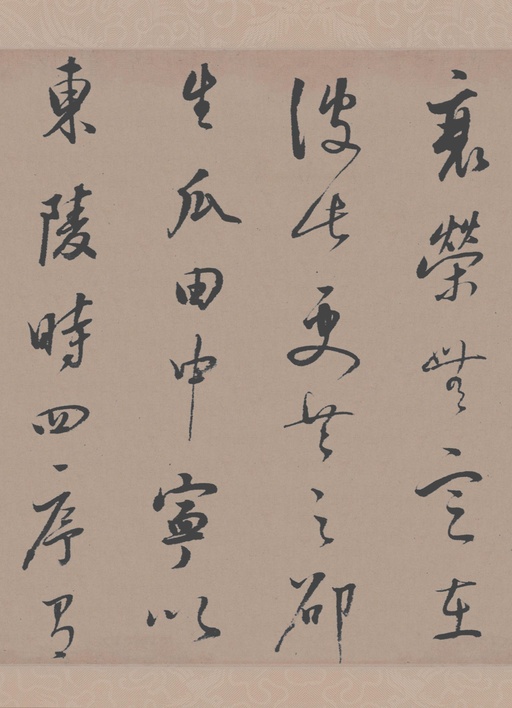 衰榮無定在
彼此更共之邵
生瓜田中寧似
東陵時四序